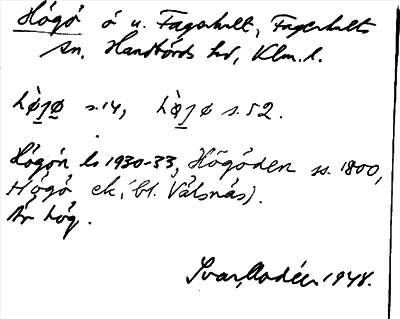 Högö ö u. Fagerhult, Fagerhults
sn, Handbörds hd, Klm. l.
s. 14, s. 52.
Högön ls 1930-33, Högöden ss. 1800,
Högö ek (bl. Välsnäs).
Är hög.
Ivar Modéer 1948.